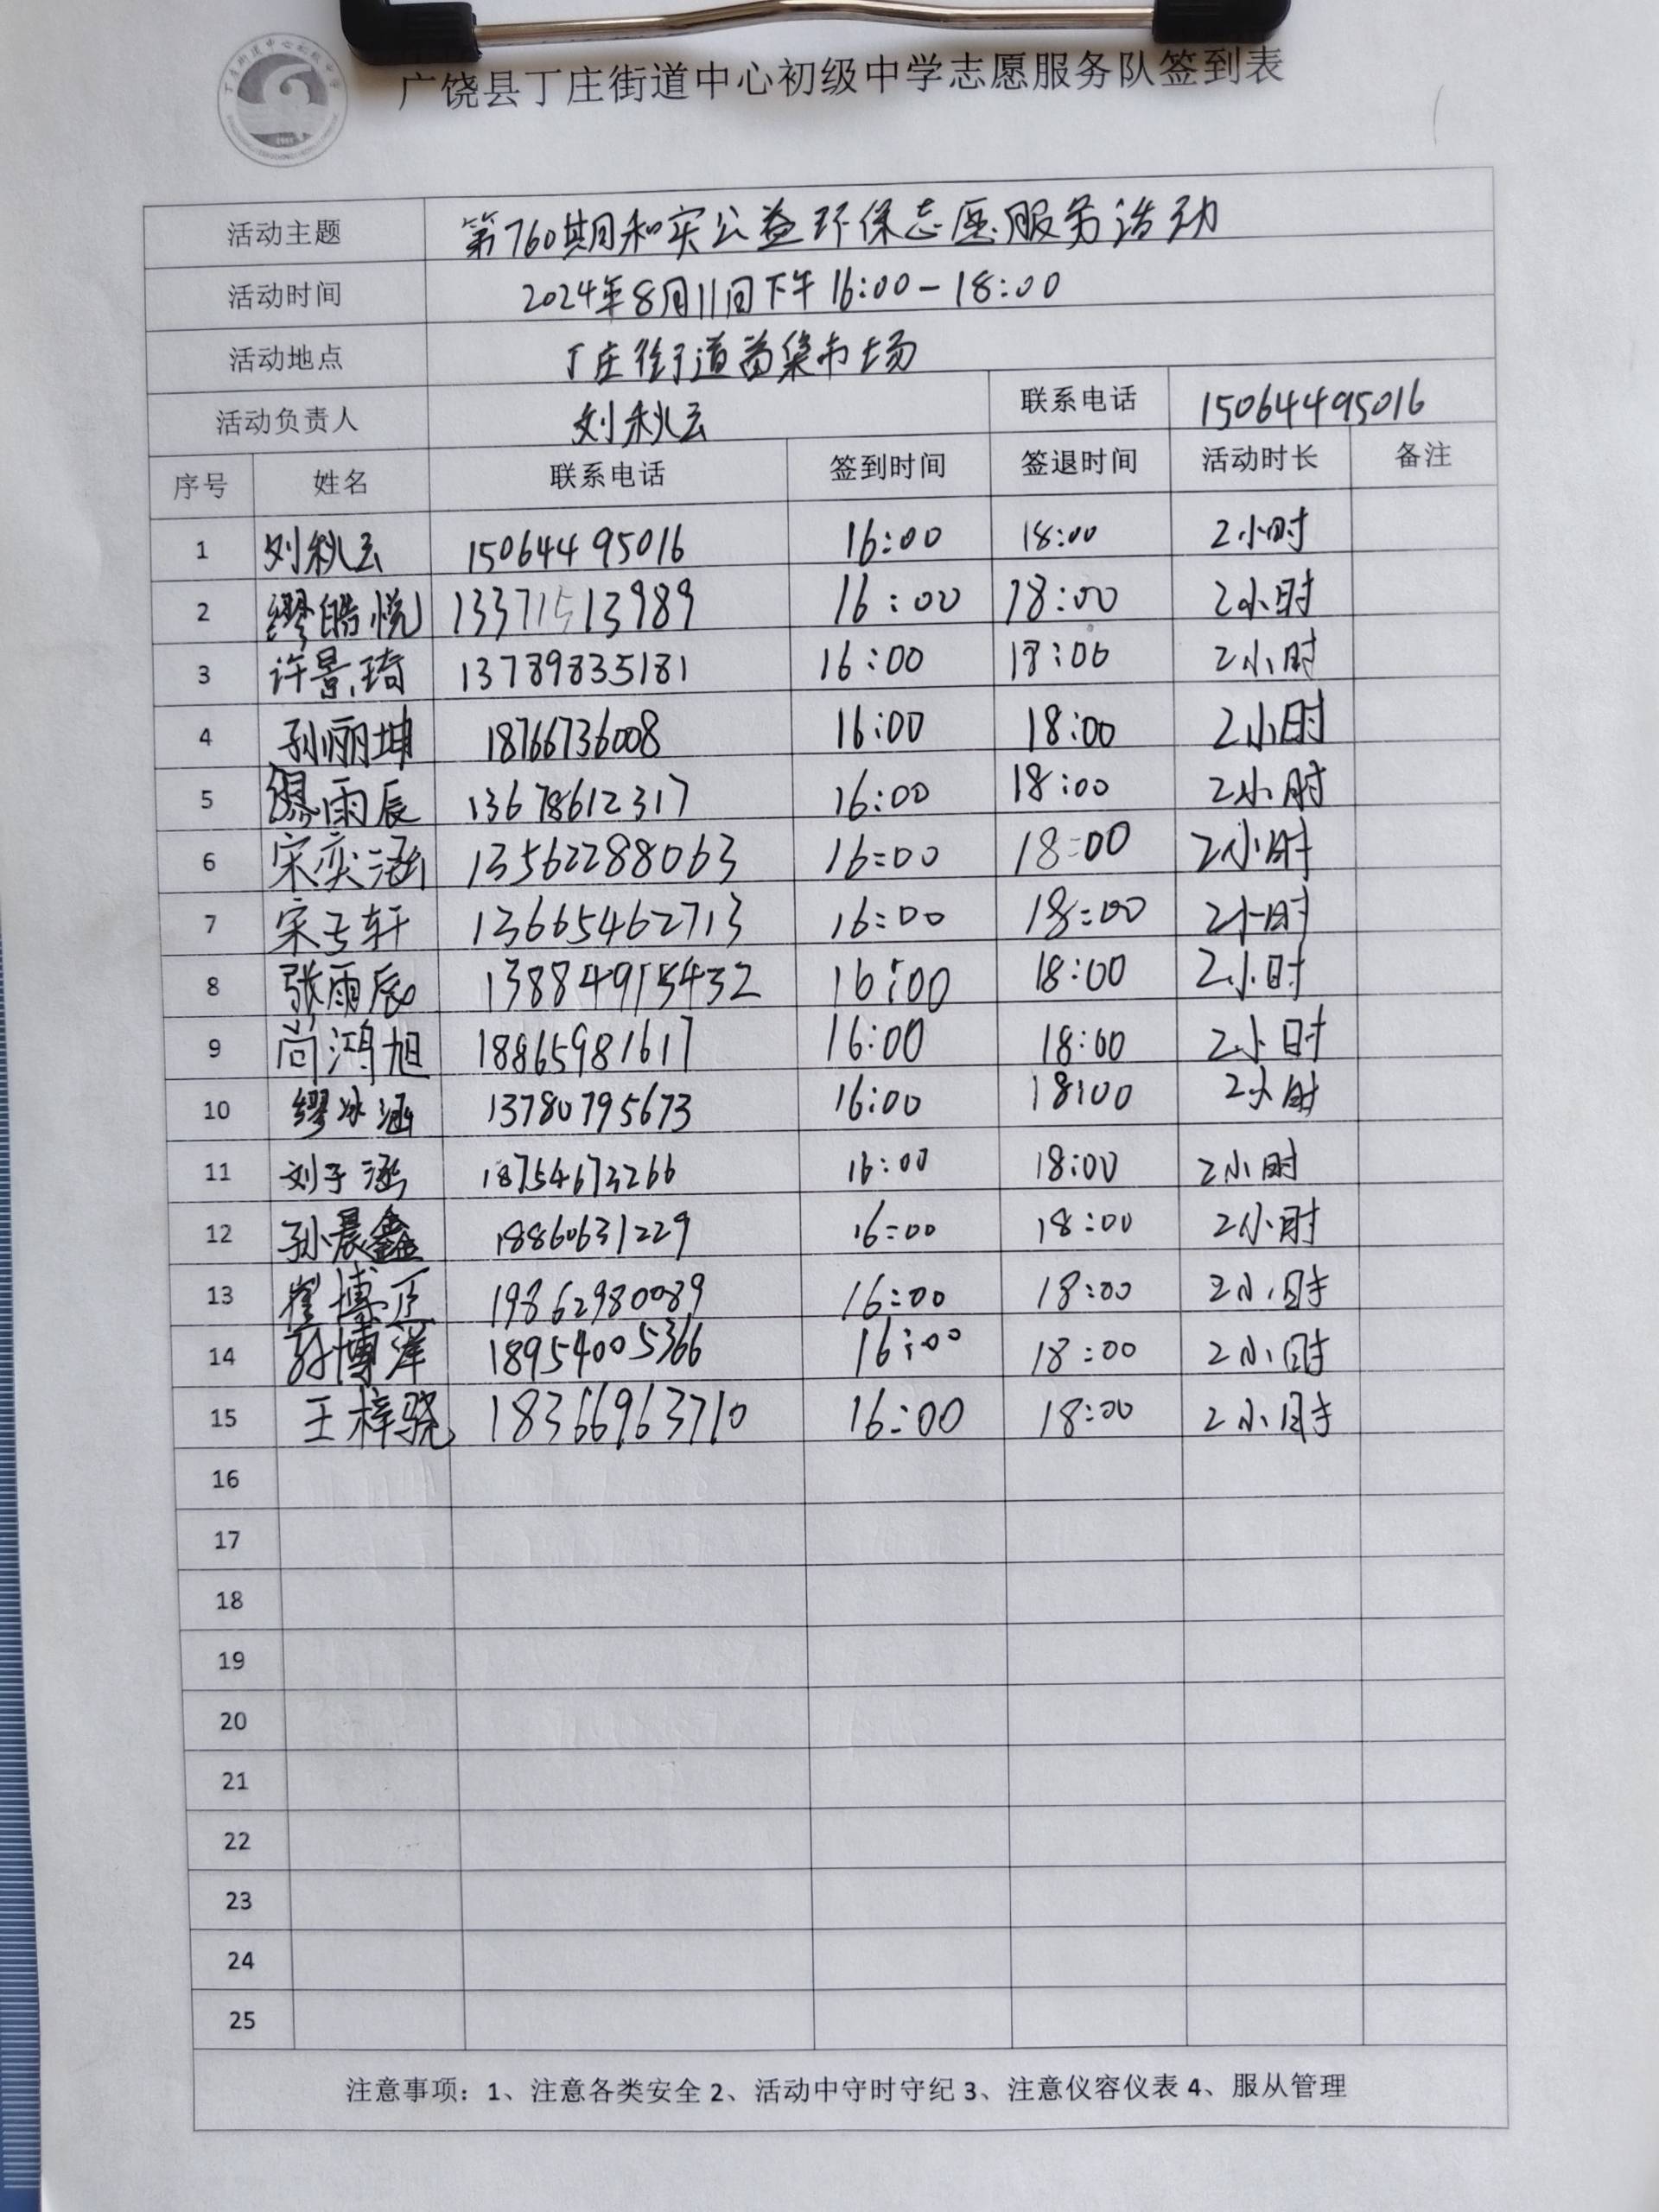 广饶县丁庄街道中心初级中学志愿服务队签到表
活动主题 第760期和实公益环保志愿服务活动
活动时间 2024年8月11日下午16:00-18:00
活动地点 丁庄街道苗集市场
活动负责人 刘秋云 联系电话 15064495016
序号 姓名 联系电话 签到时间 签退时间 活动时长 备注
1 刘秋云 15064495016 16:00 18:00 2小时
2 缪皓悦 13371513989 16:00 18:00 2小时
3 许景琦 13789835181 16:00 18:00 2小时
4 孙丽坤 18766736008 16:00 18:00 2小时
5 雨辰 13678612317 16:00 18:00 2小时
6 宋奕涵 13562288063 16:00 18:00 2小时
7 宋子轩 13665462713 16:00 18:00 2小时
8 张雨辰 13884915432 16:00 18:00 2小时
9 尚鸿旭 18865981617 16:00 18:00 2小时
10 缪冰涵 13780795673 16:00 18:00 2小时
11 刘子涵 18754673266 16:00 18:00 2小时
12 孙晨鑫 18860631229 16:00 18:00 2小时
13 崔博 19862980089 16:00 18:00 2小时
14 孙博洋 18954005366 16:00 18:00 2小时
15 王梓骁 18366963710 16:00 18:00 2小时
16
17
18
19
20
21
22
23
24
25
注意事项：1、注意各类安全 2、活动中守时守纪 3、注意仪容仪表 4、服从管理